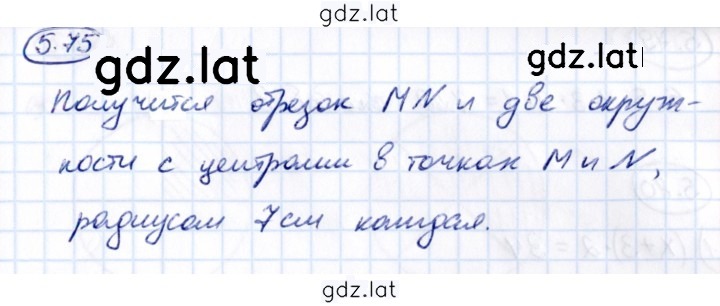 gdz.lat
5.75
gdz.lat
gdz.lat
Получится отрезок MN и две окруж-
ности с центрами в точках M и N,
радиусом 7см каждая.
gdz.lat